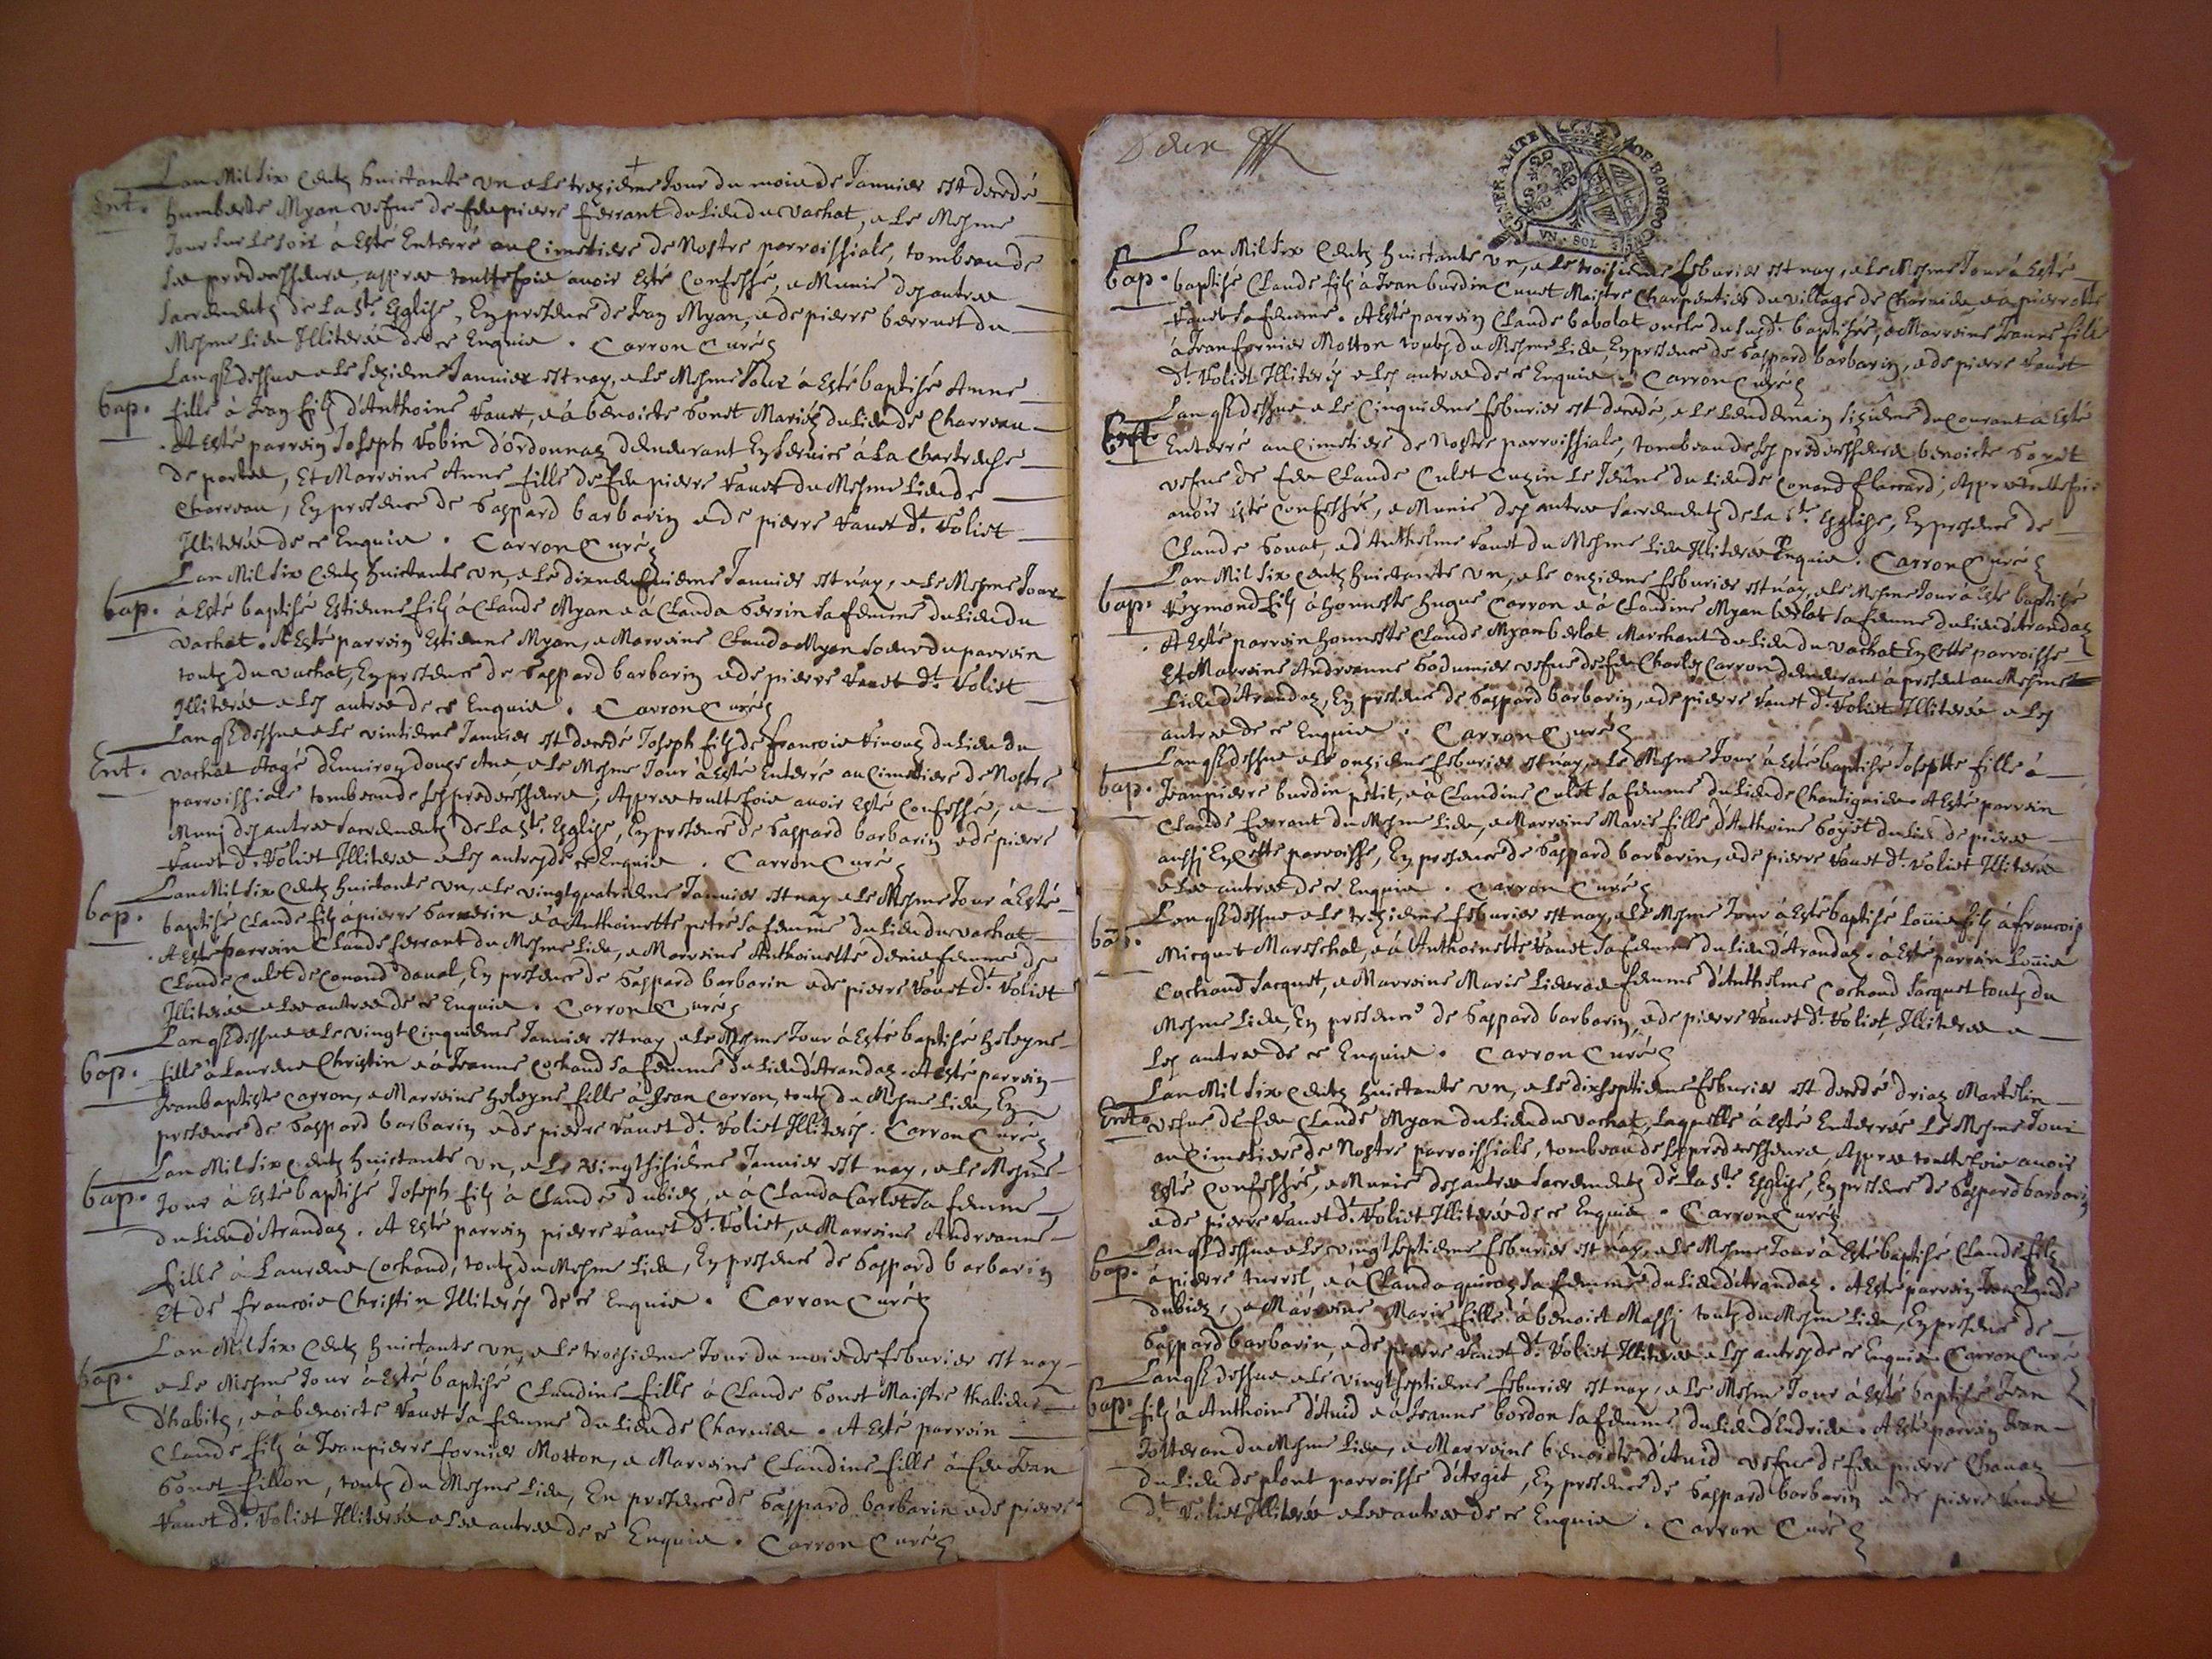 Lan Mil Six Centz huictante un, e le trezieme Jour du mois de Januier est decedé
Ent. humberte Myan vefue de feu pierre ferrant du lieu du vachat, e le Mesme
Jour sur le soir à Esté Enterré au Cimetiere de Nostre parroissiale, tombeau de
ses predecesseurs, appres touttefois auoir Esté Confessé, e Munie des autres
Sacrementz de la Ste Esglise, En presence de Jean Myan, e de pierre berruet du
Mesme lieu Illiterés de ce Enquis. Carron Curé
Lan qe dessus e le sezieme Januier est nay, e le Mesme Jour à Esté baptisé Anne
bap. fille à Jean filz d'Anthoine Vanet, e à benoicte Gonet Mariés du lieu de Charveau
A Esté parrein Joseph Robin d'ordonnaz demeurant En seruice à la Chartreuse
de portes, Et Marreine Anne fille de feu pierre Vanet du Mesme lieu de
Charveau, En presence de Gaspard barbarin e de pierre Vanet dt Voliet
Illiterés de ce Enquis. Carron Curé
Lan Mil Six Centz huictante un, e le dixneufuieme Januier est nay, e le Mesme Jour
bap. à Esté baptisé Estienne filz à Claude Myan e à Clauda Perrin sa femme du lieu du
vachat. A Esté parrein Estienne Myan, e Marreine Clauda Myan soeur du parrein
toutz du vachat, En presence de Gaspard barbarin e de pierre Vanet dt Voliet
Illiterés e les autres de ce Enquis. Carron Curé
Lan qe dessus e le vintieme Januier est decedé Joseph filz de francois du lieu du
Ent. vachat Aagé d'Enuiron douze Ans, e le Mesme Jour à Esté Enterré au Cimetiere de Nostre
parroissiale tombeau de ses predecesseurs, Appres touttefois auoir Esté Confessé, e
Muni des autres Sacrementz de la Ste Esglise, En presence de Gaspard barbarin e de pierre
Vanet dt Voliet Illiterés e les autres de ce Enquis. Carron Curé
Lan Mil Six Centz huictante un, e le vingtquatrieme Januier est nay e le Mesme Jour à Esté
bap. baptisé Claude filz à pierre e à Anthoinette petré sa femme du lieu du vachat
A Esté parrein Claude ferrant du Mesme lieu, e Marreine Anthoinette femme de
Claude Culet de Conand daual, En presence de Gaspard barbarin e de pierre Vanet dt Voliet
Illiterés e les autres de ce Enquis. Carron Curé
Lan qe dessus e le vingt Cinquieme Januier est nay e le Mesme Jour à Esté baptisé heleyne
bap. fille à Laurens Christin e à Jeanne Cochand sa femme du lieu d'Arandaz. A Esté parrein
Jean baptiste Carron, e Marreine heleyne fille à Jean Carron, toutz du Mesme lieu, En
presence de Gaspard barbarin e de pierre Vanet dt Voliet Illiterés. Carron Curé
Lan Mil Six Centz huictante un, e le vingtsisieme Januier est nay, e le Mesme
bap. Jour à Esté baptisé Joseph filz à Claude dubiez, e à Clauda Carlet sa femme
du lieu d'Arandaz. A Esté parrein pierre Vanet dt Voliet, e Marreine Andreanne
fille à Laurens Cochand, toutz du Mesme lieu, En presence de Gaspard barbarin
Et de francois Christin Illiterés de ce Enquis. Carron Curé
Lan Mil Six Centz huictante un, e le troisieme Jour du mois de feburier est nay
bap. e le Mesme Jour à Esté baptisé Claudine fille à Claude Gonet Maistre
d'habitz, e à benoicte Vanet sa femme du lieu de Charuieu. A Esté parrein
Claude filz à Jean pierre fornier Motton, e Marreine Claudine fille à feu Jean
Gonet fillon, toutz du Mesme lieu, En presence de Gaspard barbarin e de pierre
Vanet dt Voliet Illiterés e les autres de ce Enquis. Carron Curé
Deux
GENERALITE DE BOURGOGNE
UN SOL
Lan Mil Six Centz huictante un, e le troisieme feburier est nay, e le Mesme Jour à Esté
bap. baptisé Claude filz à Jean burdin Cunet Maistre Charpentier du village de Charuieu e à pierrotte
Vanet sa femme. A Esté parrein Claude babolat oncle du susdt baptisé, e Marreine Jeanne fille
à Jean fornier Motton toutz du Mesme lieu, En presence de Gaspard barbarin, e de pierre Vanet
dt Voliet Illiterés e les autres de ce Enquis. Carron Curé
Lan qe dessus e le Cinquieme feburier est decedé, e le lendemain sizieme du Courant à Esté
Ent. Enterré au Cimetiere de Nostre parroissiale, tombeau de ses predecesseurs benoicte Goyet
vefue de feu Claude Culet Cuzin le Jeune du lieu de Conand, Appres touttefois
auoir Esté Confessée, e Munie des autres Sacrementz de la Ste Esglise, En presence de
Claude Gonet, e d'Anthelme Vanet du Mesme lieu Illiterés Enquis. Carron Curé
Lan Mil Six Centz huictante un, e le onzieme feburier est nay, e le Mesme Jour à Esté baptisé
bap. Reymond filz à honneste hugue Carron e à Claudine Myan berlat sa femme du lieu d'Arandaz
A Esté parrein honneste Claude Myan berlat Marchant du lieu du vachat En cette parroisse
Et Marreine Andreanne vefue de feu Charles Carron demeurant à present au Mesme
lieu d'Arandaz, En presence de Gaspard barbarin, e de pierre Vanet dt Voliet Illiterés e les
autres de ce Enquis. Carron Curé
Lan qe dessus e le onzieme feburier est nay, e le Mesme Jour à Esté baptisé Josepte fille à
bap. Jean pierre burdin petit, e à Claudine Culet sa femme du lieu de. A Esté parrein
Claude ferrant du Mesme lieu, e Marreine Marie fille d'Anthoine Goyet du lieu de
aussi En cette parroisse, En presence de Gaspard barbarin, e de pierre Vanet dt Voliet Illiterés
e les autres de ce Enquis. Carron Curé
Lan qe dessus e le trezieme feburier est nay, e le Mesme Jour à Esté baptisé Louis filz à francois
bap. Micquet Mareschal, e à Anthoinette Vanet sa femme du lieu d'Arandaz. à Esté parrein Louis
Cochand Jacquet, e Marreine Marie femme d'Anthelme Cochand Jacquet toutz du
Mesme lieu, En presence de Gaspard barbarin, e de pierre Vanet dt Voliet, Illiterés e
les autres de ce Enquis. Carron Curé
Lan Mil Six Centz huictante un, e le dixseptieme feburier est decedé Martelin
Ent. vefue de feu Claude Myan du lieu du vachat, laquelle à Esté Enterrée le Mesme Jour
au Cimetiere de Nostre parroissiale, tombeau de ses predecesseurs, Appres touttefois auoir
Esté Confessée, e Munie des autres Sacrementz de la Ste Esglise, En presence de Gaspard barbarin
e de pierre Vanet dt Voliet Illiterés de ce Enquis. Carron Curé
Lan qe dessus e le vingtseptieme feburier est nay, e le Mesme Jour à Esté baptisé Claude filz
bap. à pierre turrel, e à Clauda sa femme du lieu d'Arandaz. A Esté parrein Jean Claude
dubiez, e Marreine Marie fille à benoict Massi toutz du Mesme lieu, En presence de
Gaspard barbarin, e de pierre Vanet dt Voliet Illiterés e les autres de ce Enquis. Carron Curé
Lan qe dessus e le vingtseptieme feburier est nay, e le Mesme Jour à Esté baptisé Jean
bap. filz à Anthoine d'Auid e à Jeanne bordon sa femme du lieu. A Esté parrein Jean
du Mesme lieu, e Marreine benoicte d'Auid vefue de feu pierre Chanaz
du lieu de plont parroisse d'Argit, En presence de Gaspard barbarin e de pierre Vanet
dt Voliet Illiterés e les autres de ce Enquis. Carron Curé